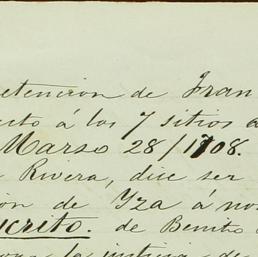 etencion de Fran
ecto á los 7 sitios d
Marso 28/1708.
Rivera, due ser
ion de Iza á no
ucrito. de Benito